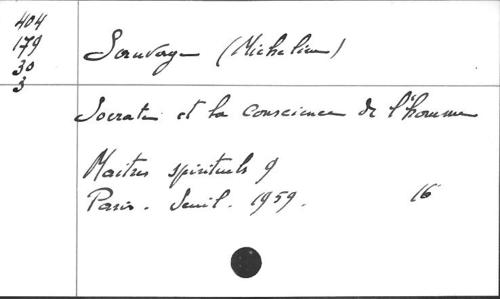 404
179
30
3
Sauvage (Micheline)
Socrate et la conscience de l'homme
Maitres spirituels 9
Paris. Seuil. 1959. 16